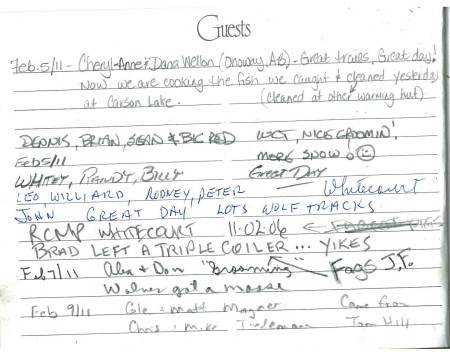 Guests
Feb. 5/11 - Cheryl-Anne & Dana Wellon (Onoway, AB) - Great trails, Great day!
Now we are cooking the fish we caught & cleaned yesterday
at Carson Lake. (cleaned at other warming hut)
DENNIS, BRIAN, SEAN & BIG RED WCT, NICE GROOMIN'!
Feb 5/11 more snow!
WHITEY, RANDY, BILLY Great Day
LEO WILLIARD, RODNEY, PETER Whitecourt
JOHN GREAT DAY LOTS WOLF TRACKS
RCMP WHITECOURT 11.02.06
BRAD LEFT A TRIPLE COILER... YIKES
Feb 7/11 Alex & Don "Grooming" J.F.
got a moose
Feb 9/11 Gle : Matt Magner Came from
Chris : Mike Tom Hill